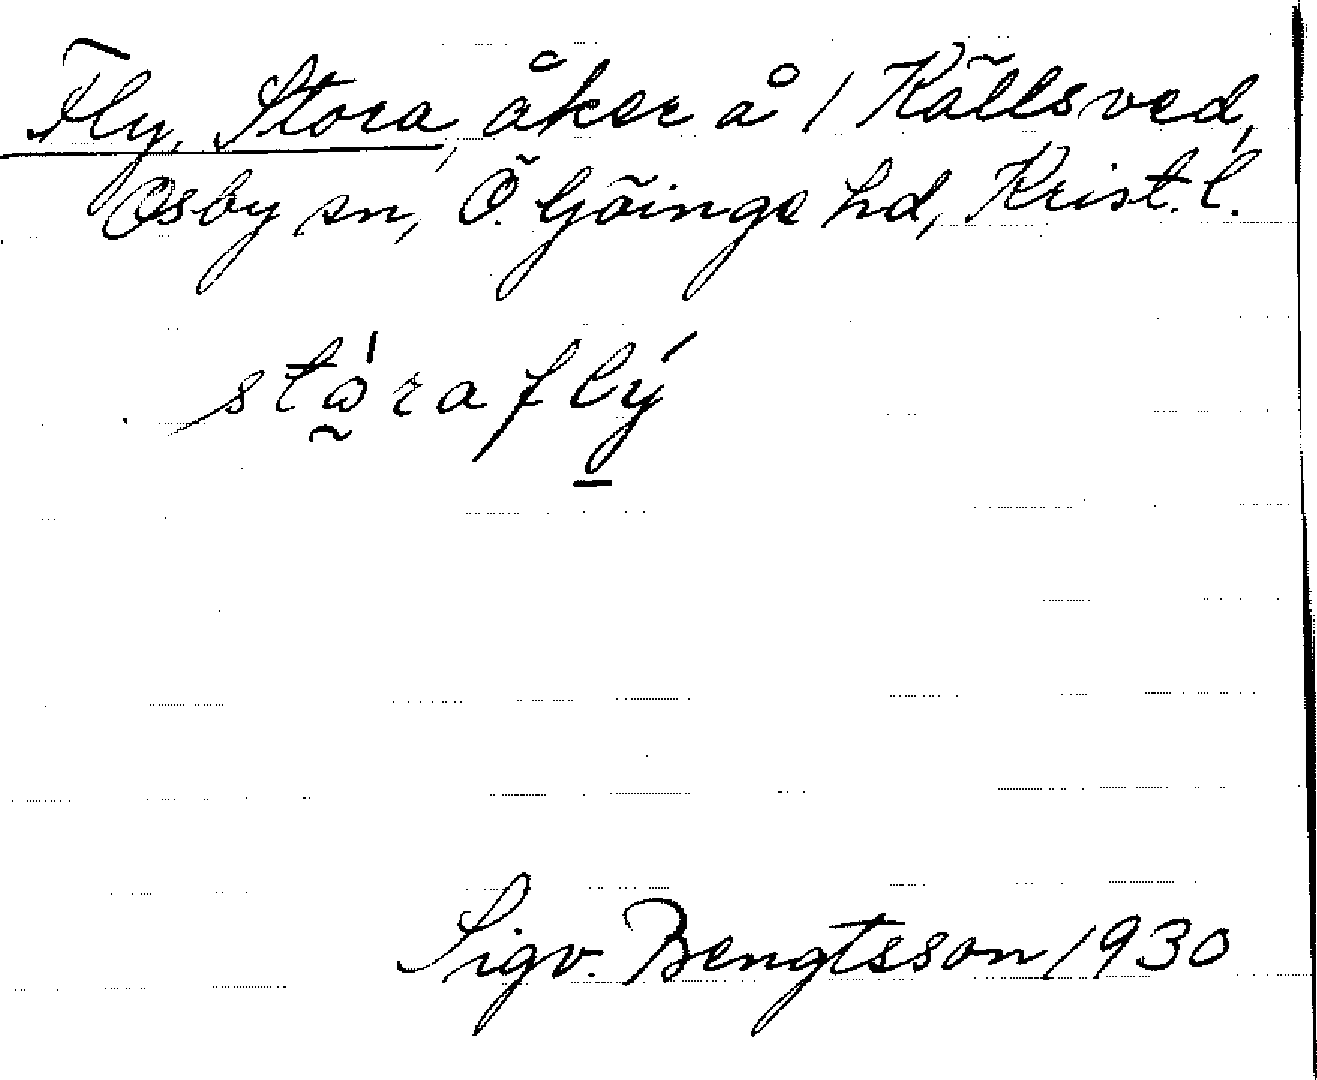 Fly, Stora, åker å 1 Källsved,
Osby sn, Ö. Göinge hd, Krist. l.
stårafly
Sigv. Bengtsson 1930